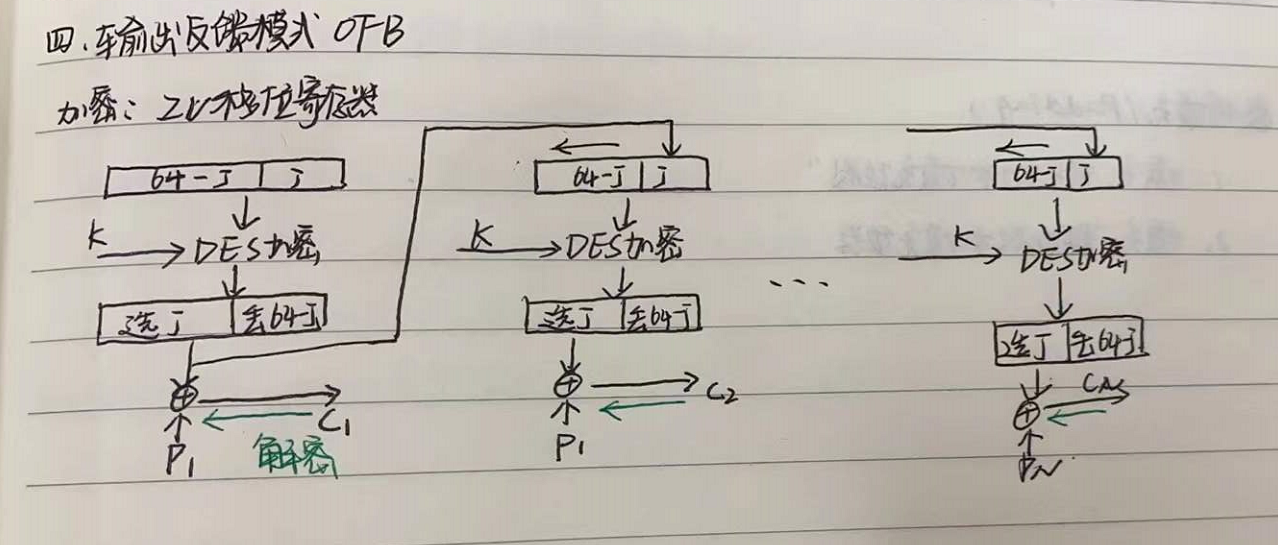 四.输出反馈模式 OFB
加密: IV移位寄存器
64-J J 64-J J 64-J J
K DES加密 K DES加密 K DES加密
选J 丢64-J 选J 丢64-J ... 选J 丢64-J
C1 C2 CN
P1 解密 P1 PN